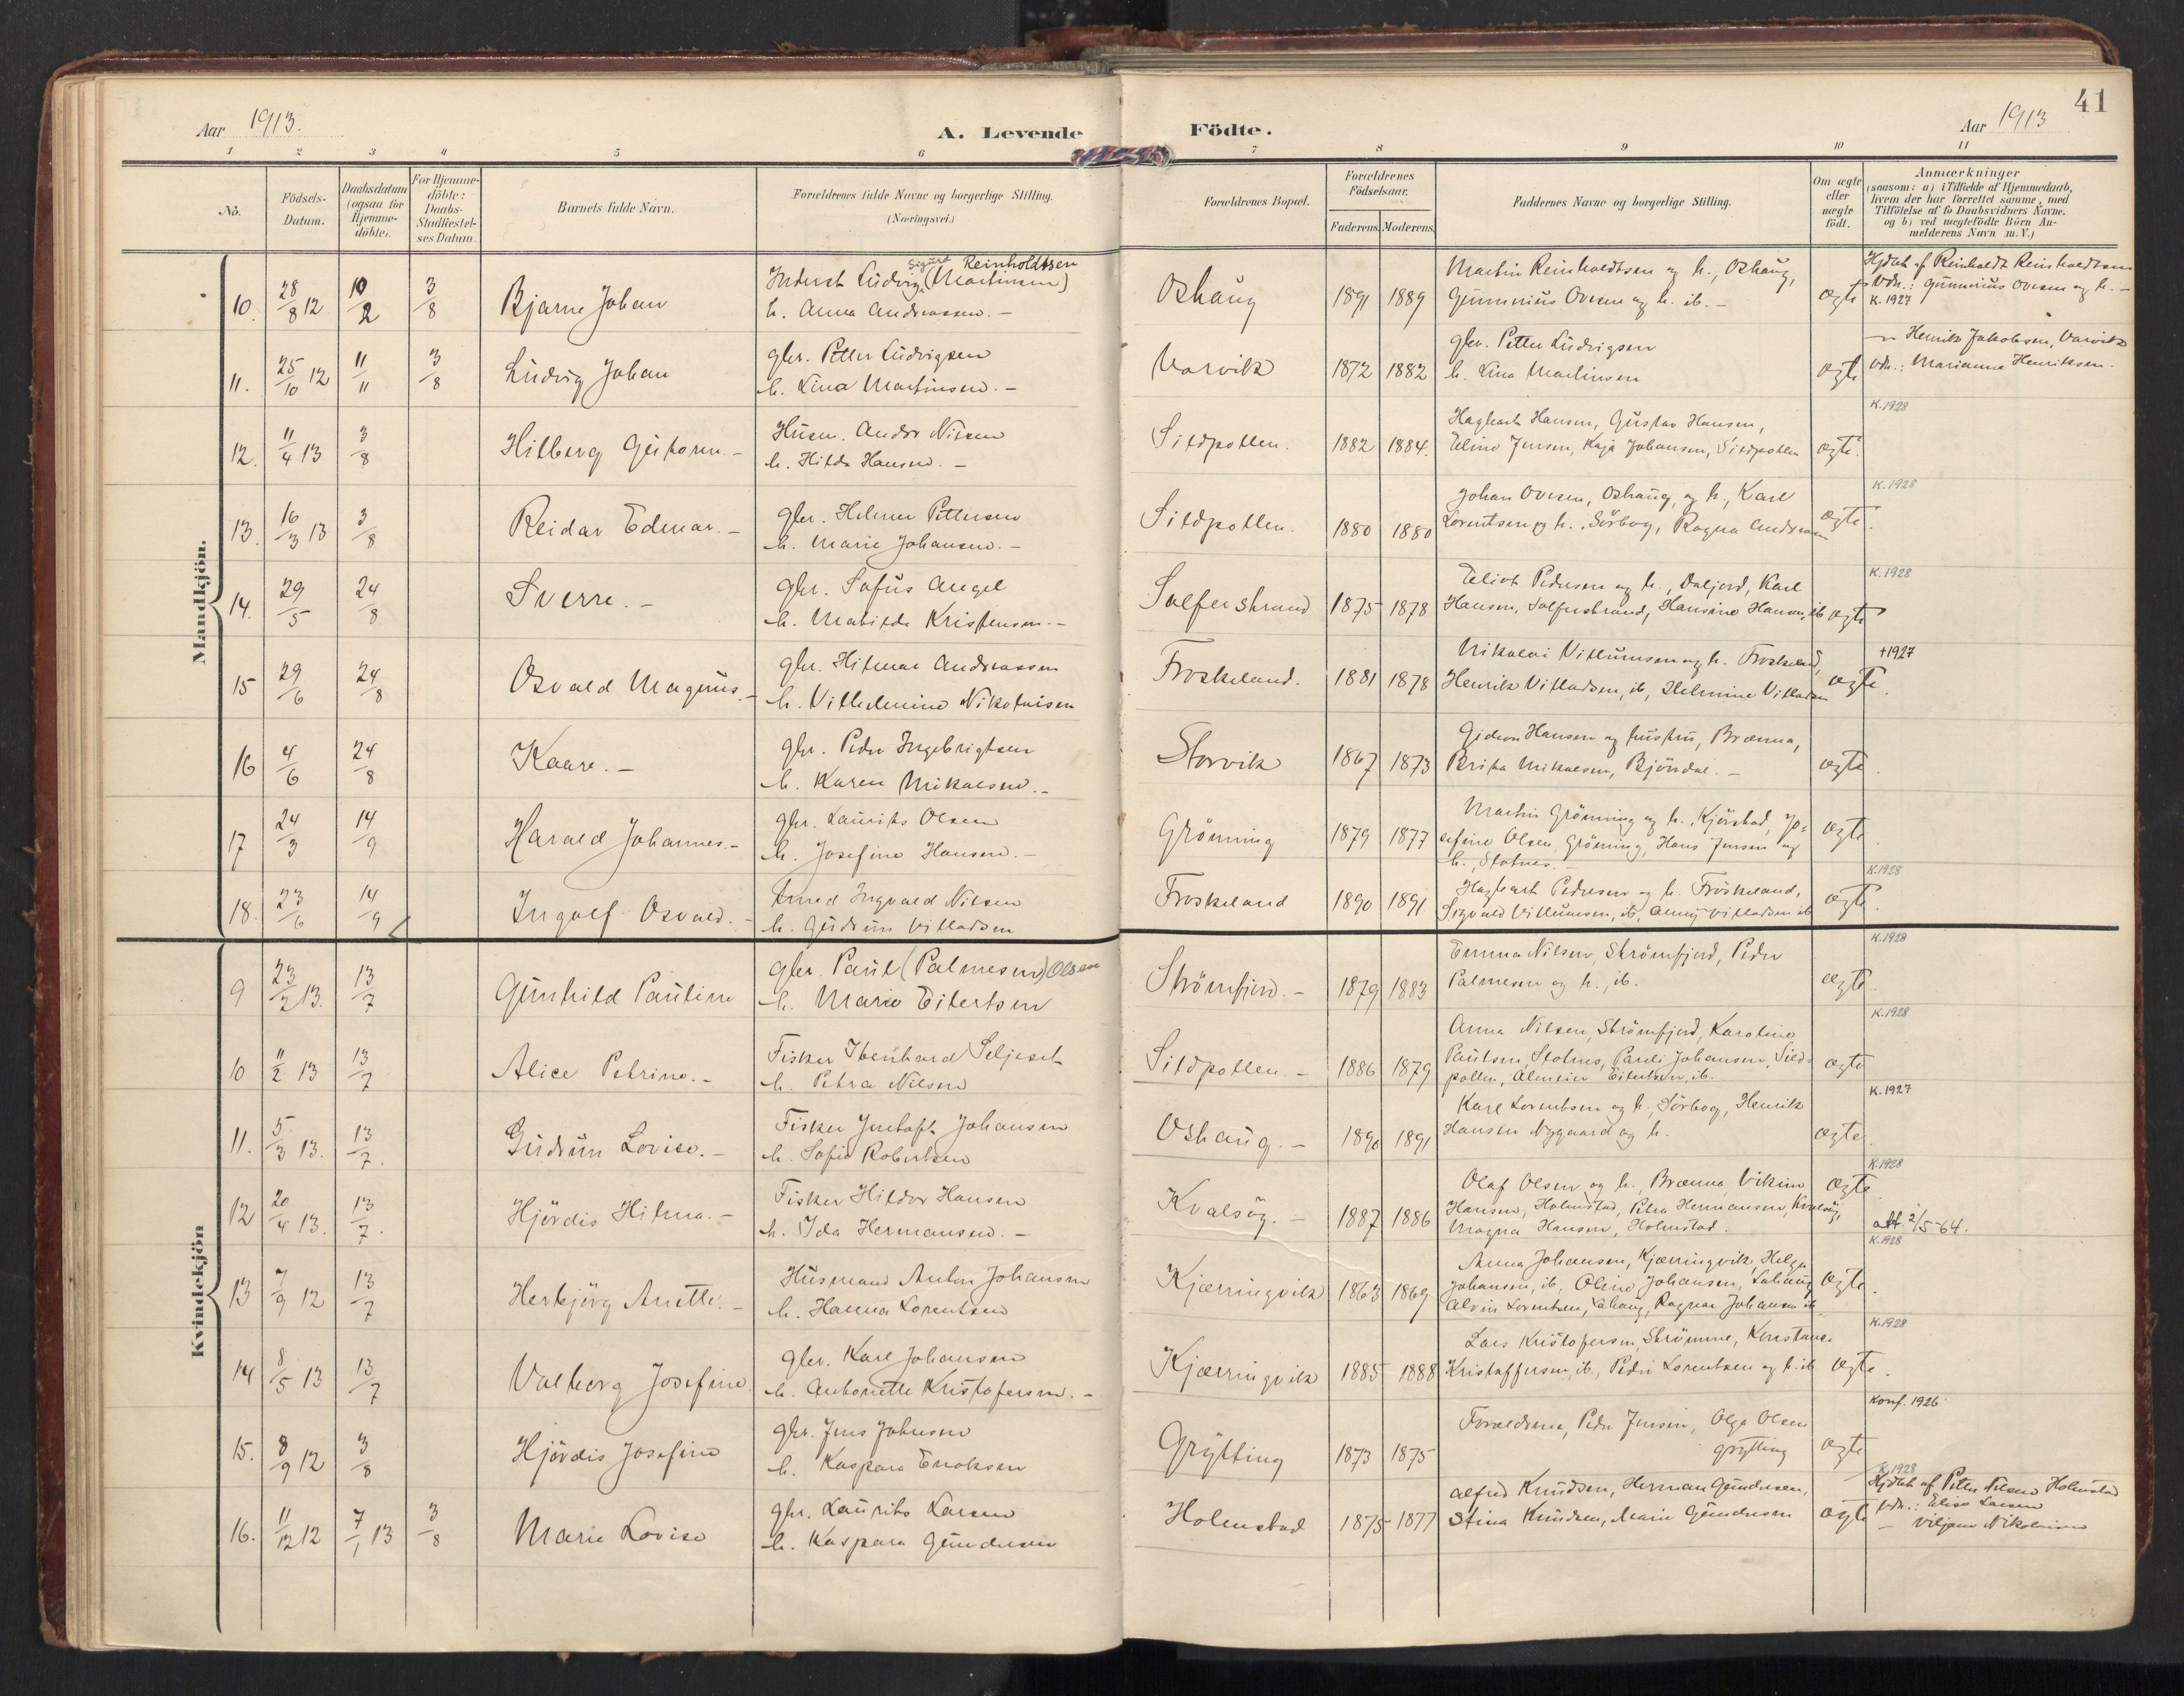 41
Aar 1913.
A. Levende Födte.
Aar 1913
1 2 3 4 5 6 7 8 9 10 11
No.
Födsels-
Datum.
Daabsdatum
(ogsaa for
Hjemme-
döbte).
For Hjemme-
döbte:
Daabs-
Stadfæstel-
ses Datum.
Barnets fulde Navn.
Forældrenes fulde Navne og borgerlige Stilling.
(Næringsvei.)
Forældrenes Bopæl.
Forældrenes
Födselsaar.
Faderens. Moderens.
Faddernes Navne og borgerlige Stilling.
Om ægte
eller
uægte
födt.
Anmærkninger
(saasom: a) i Tilfælde af Hjemmedaab,
hvem der har forrettet samme, med
Tilföielse af to Daabsvidners Navne.
og b) ved uægtefödte Börn An-
melderens Navn m. V.)
Mandkjön.
10. 28/8 12 10/2 3/8 Bjarne Johan
Sigurd Reinholdtsen
Inderst Ludvig (Martinsen)
h. Anna Andreassen. –
Oshaug 1891 1889
Martin Reinholdtsen og h., Oshaug,
Gunnerius Ovesen og h. ib. –
ægte
Hjdbt af Reinholdt Reinholdtsen
Vdn.: Gunnerius Ovesen og h. –
K. 1927
11. 25/10 12 11/11 3/8 Ludvig Johan
gbr. Petter Ludvigsen
h. Lina Martinsen. –
Vorvik 1872 1882
gbr. Petter Ludvigsen
h. Lina Martinsen
ægte
Henrik Jakobsen, Vorvik
Vdn.: Marianne Henriksen.
12. 11/4 13 3/8 Hilberg Gutorm. –
Husm. Andor Nilsen
h. Hilda Hansen. –
Sildpollen. 1882 1884.
Hagbart Hansen, Gustav Hansen,
Eline Jensen, Kaja Johansen, Sildpollen
ægte.
K. 1928
13. 16/3 13 3/8 Reidar Edmar. –
gbr. Helmer Pettersen
h. Marie Johansen. –
Sildpollen. 1880 1880
Johan Ovesen, Oshaug, og h., Karl
Lorentsen og h., Sörbog, Ragna Andreasen
ægte.
K. 1928
14. 29/5 24/8 Sverre. –
gbr. Sofus Angel
h. Matilde Kristensen. –
Salferstrand 1875 1878
Eliot Pedersen og h., Daljord, Karl
Hansen, Salferstrand, Hansine Hansen, ib
ægte
K. 1928
15 29/6 24/8 Osvald Magnus. –
gbr. Hilmar Andreassen
h. Vilhelmine Nikolaisen
Froskeland. 1881 1878
Nikolai Villumsen og h. Froskeland,
Henrik Villadsen, ib, Helmine Villadsen
ægte.
+1927
16 4/6 24/8 Kaare. –
gbr. Peder Ingebrigtsen
h. Karen Mikalsen. –
Storvik 1867 1873
Gideon Hansen og hustru, Brænna,
Brita Mikalsen, Bjöndal. –
ægte.
17 24/3 14/9 Harald Johannes. –
gbr. Laurits Olsen
h. Josefine Hansen. –
Grönning 1879 1877
Martin Grönning og h., Kjörstad, Jo-
sefine Olsen, Grönning, Hans Jensen og
h., Slotnes.
ægte.
18. 23/6 14/9 Ingolf Osvald. –
Ingvald Nilsen
h. Gudrun Villadsen
Froskeland 1890 1891
Hagbart Pedersen og h. Fröskeland,
Sigvald Villumsen, ib, Anny Villadsen ib
ægte.
K. 1928
Kvindekjön
9 23/2 13. 13/7 Gunhild Pauline
gbr. Paul (Palmesen) Olsen
h. Marie Eilertsen
Strömfjord. – 1879 1883
Emma Nilsen, Strömfjord, Peder
Palmesen og h., ib.
ægte.
K. 1928
10 11/2 13 13/7 Alice Petrine. –
Fisker Ibenhard Seljeset
h. Petra Nilsen
Sildpollen. – 1886 1879
Anna Nilsen, Strömfjord, Karoline
Paulsen, Slotnes, Pauli Johansen, Sild-
pollen, Eilertsen, ib.
ægte
K. 1928
11. 5/3 13. 13/7. Gudrun Lovise. –
Fisker Johansen
h. Sofie Robertsen
Oshaug. – 1890 1891
Karl Lorentsen og h., Sörbog, Henrik
Hansen Nygaard og h.
ægte.
K. 1927
12 20/4 13. 13/7. Hjördis Hilma. –
Fisker Hildor Hansen
h. Ida Hermansen. –
Kvalsög. – 1887 1886
Olaf Olsen og h., Brænna, Vikine
Hansen, Holmstad, Petra Hermansen, Kvalsög,
Magna Hansen, Holmstad.
ægte
K. 1928
att. 2/5-64.
13 7/9 12 13/7 Herbjörg Anette. –
Husmand Anton Johansen
h. Hanna Lorentsen
Kjærringvik 1863 1869
Anna Johansen, Kjærringvik, Helga
Johansen, ib, Oline Johansen,
Alvin Lorentsen, Ragnar Johansen ib.
ægte.
K. 1928
14 8/5 13 13/7 Valborg Josefine.
gbr. Karl Johansen
h. Antonette Kristofersen. –
Kjærringvik 1885 1888
Lars Kristofersen, Strömme, Konstance
Kristoffersen, ib., Peder Lorentsen og h. ib
ægte.
K. 1928
15. 8/9 12 3/8 Hjördis Josefine
gbr. Jens Johnsen
h. Kaspara Enoksen
Grytting 1873 1875
Forældrene, Peder Jensen, Olga Olsen
Grytting
ægte
Konf. 1926
16. 11/12 12 7/1 13 3/8 Marie Lovise
gbr. Laurits Larsen
h. Kaspara Gundersen
Holmstad 1875 1877
Alfred Knudsen, Herman Gundersen,
Stina Knudsen, Marie Gundersen
ægte
K. 1928
Hjdbt af Petter Nilsen Holmstad
Vdn.: Elise Larsen
– Viljam Nikolaisen